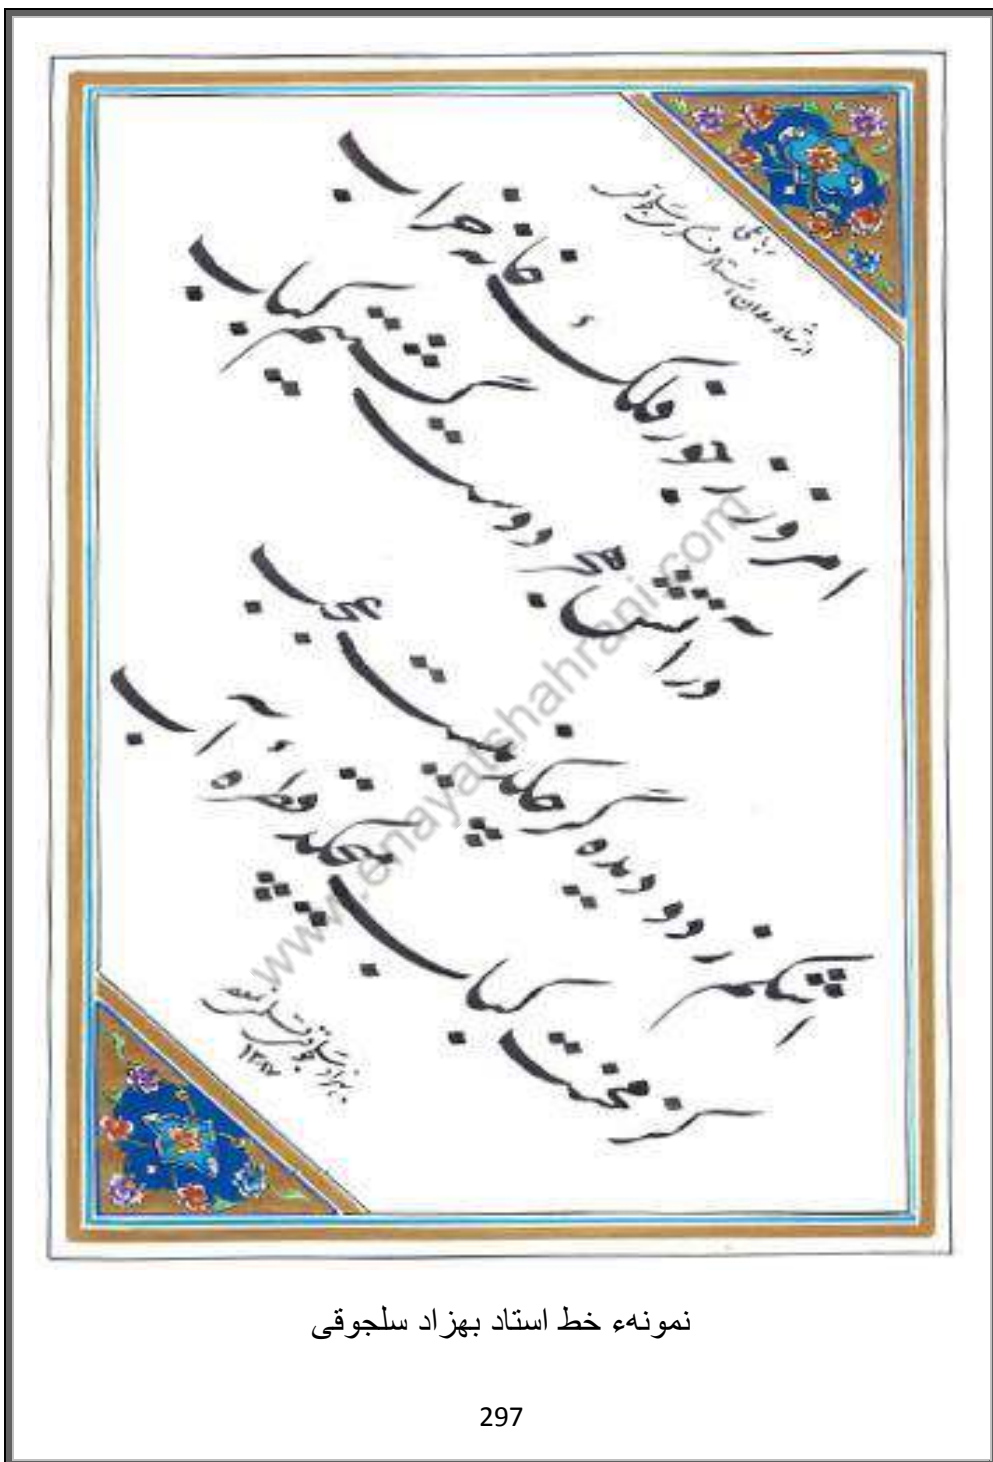 رباعی
از شادروان استاد فکری سلجوقی
امروز ز جور فلک خانهٔ خراب
در آتش هجر دوست گشتیم کباب
اشکم ز دو دیده گر چکد نیست عجب
کز کباب میچکد قطرهٔ آب
بهزاد سلجوقی
۱۳۸۷
www.enayatshahrani.com
نمونهء خط استاد بهزاد سلجوقی
297